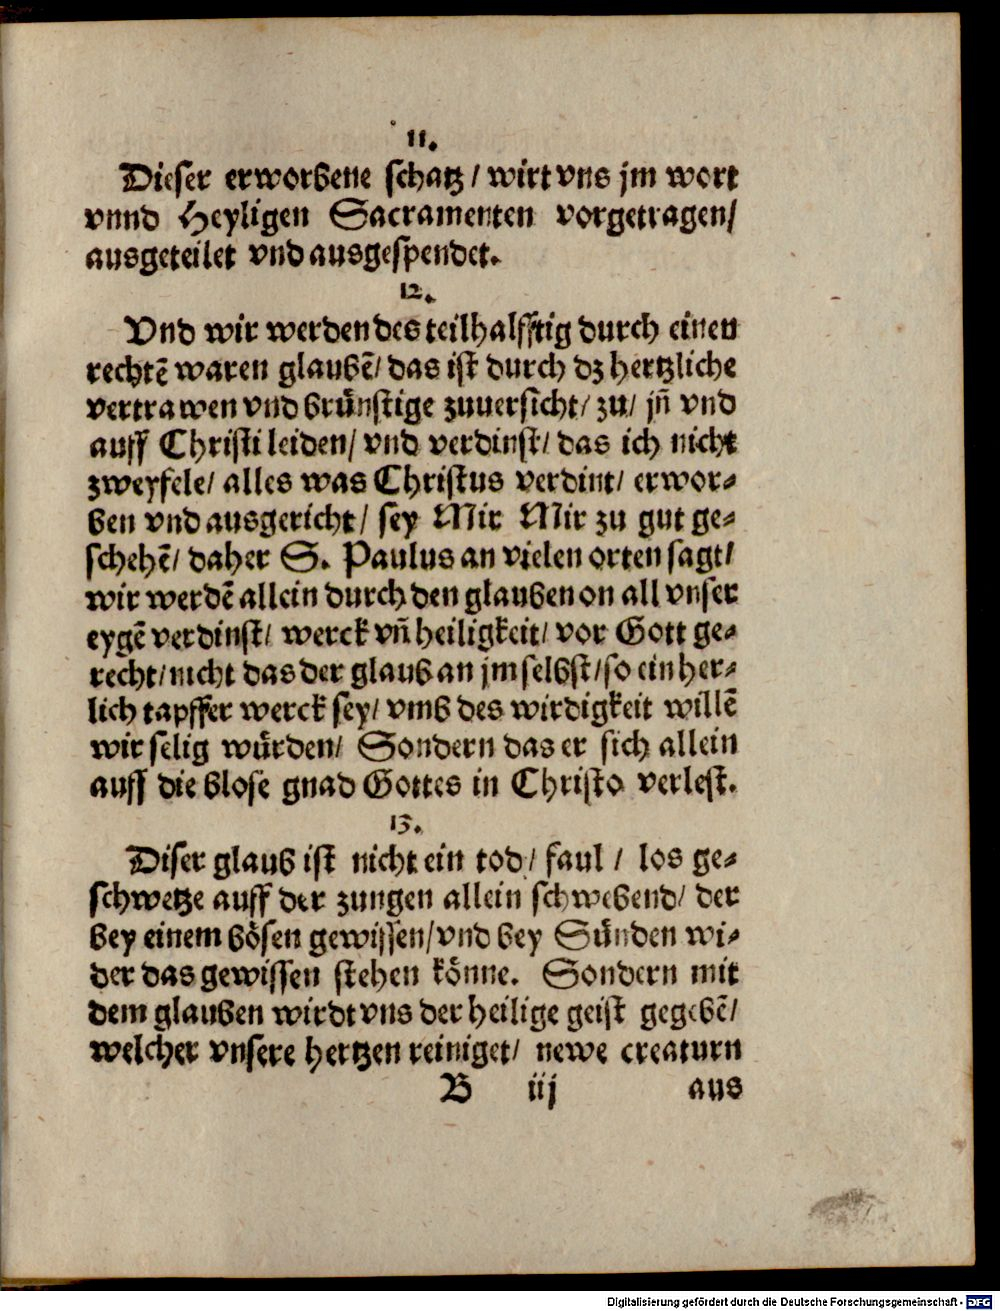 11.
Dieser erworbene schatz / wirt vns jm wort
vnnd Heyligen Sacramenten vorgetragen/
ausgeteilet vnd ausgespendet.
12.
Vnd wir werden des teilhalfftig durch einen
rechtē waren glaubē/ das ist durch dz hertzliche
vertrawen vnd brünstige zuuersicht/ zu/ jn̄ vnd
auff Christi leiden/ vnd verdinst/ das ich nicht
zweyfele/ alles was Christus verdint/ erwor-
ben vnd ausgericht/ sey Mir Mir zu gut ge-
schehē/ daher S. Paulus an vielen orten sagt/
wir werdē allein durch den glauben on all vnser
eygē verdinst/ werck vn̄ heiligkeit/ vor Gott ge-
recht/ nicht das der glaub an jm selbst/ so ein her-
lich tapffer werck sey/ vmb des wirdigkeit willē
wir selig würden/ Sondern das er sich allein
auff die blose gnad Gottes in Christo verlest.
13.
Diser glaub ist nicht ein tod/ faul / los ge-
schwetze auff der zungen allein schwebend/ der
bey einem bösen gewissen/ vnd bey Sünden wi-
der das gewissen stehen könne. Sondern mit
dem glauben wirdt vns der heilige geist gegebē/
welcher vnsere hertzen reiniget/ newe creaturn
B iij aus
Digitalisierung gefördert durch die Deutsche Forschungsgemeinschaft - DFG